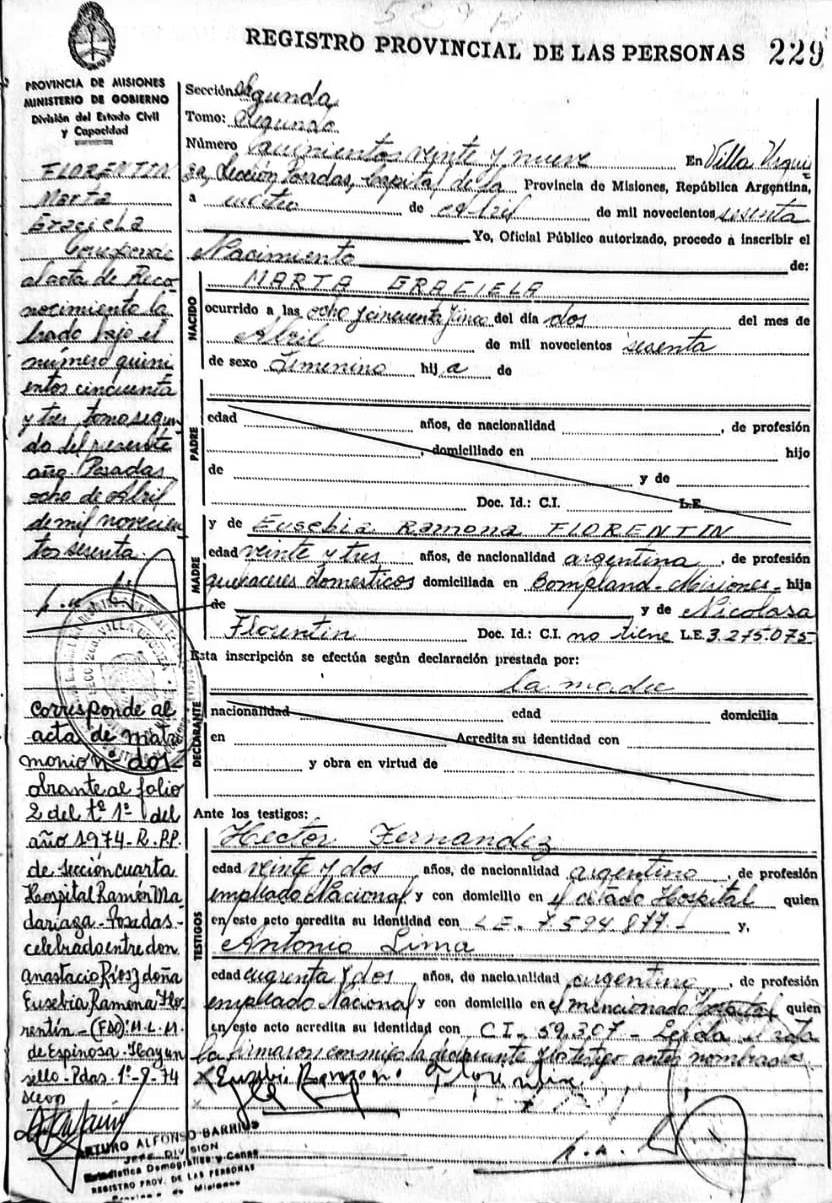 REGISTRO PROVINCIAL DE LAS PERSONAS 229
PROVINCIA DE MISIONES
MINISTERIO DE GOBIERNO
División del Estado Civil
y Capacidad
FLORENTIN
Marta
Graciela
corresponde
al acta de Reco-
nocimiento la
brado bajo el
número quini
entos cincuenta
y tres tomo segun
do del presente
año. Posadas
ocho de Abril
de mil novecien
tos sesenta.
corresponde al
acta de matri
monio nº dos
obrante al folio
2 del tº 1º del
año 1974 - R.P.P.
de Sección cuarta
Hospital Ramón Ma
dariaga - Posadas -
celebrado entre don
anastacio Rios y doña
Eusebia Ramona Flo
rentín - (FDO): M. L. M.
de Espinosa - Hay un
sello - Pdas. 1º-9-74
ARTURO ALFONSO BARRIOS
JEFE DIVISION
Estadistica Demografica y Censos
REGISTRO PROV. DE LAS PERSONAS
Sección Segunda
Tomo: Segundo
Número quinientos veinte y nueve En Villa Urqui
za, Sección Posadas, Capital de la Provincia de Misiones, República Argentina,
a cuatro de Abril de mil novecientos sesenta
Yo, Oficial Público autorizado, procedo a inscribir el
Nacimiento de:
NACIDO
MARTA GRACIELA
ocurrido a las ocho y cincuenta y cinco del día dos del mes de
Abril de mil novecientos sesenta
de sexo Femenino hija de
PADRE
edad años, de nacionalidad , de profesión
, domiciliado en hijo
de y de
Doc. Id.: C.I. L.E.
MADRE
y de Eusebia Ramona FLORENTIN
edad veinte y tres años, de nacionalidad argentina, de profesión
quehaceres domesticos domiciliada en Bompland - Misiones - hija
de y de Nicolasa
Florentin Doc. Id.: C.I. no tiene L.E. 3.275.075
Esta inscripción se efectúa según declaración prestada por:
DECLARANTE
la madre
nacionalidad edad domicilia
en Acredita su identidad con
y obra en virtud de
Ante los testigos:
TESTIGOS
Hector Fernandez
edad veinte y dos años, de nacionalidad argentino, de profesión
empleado Nacional y con domicilio en el citado Hospital quien
en este acto acredita su identidad con L.E. 7.594.877.- y,
Antonio Lima
edad cuarenta y dos años, de nacionalidad argentino, de profesión
empleado Nacional y con domicilio en el mencionado Hospital quien
en este acto acredita su identidad con C.I. 59.307 - Leida el acta
la firmaron conmigo la declarante y los testigo antes nombrados
Eusebia Ramona Florentin